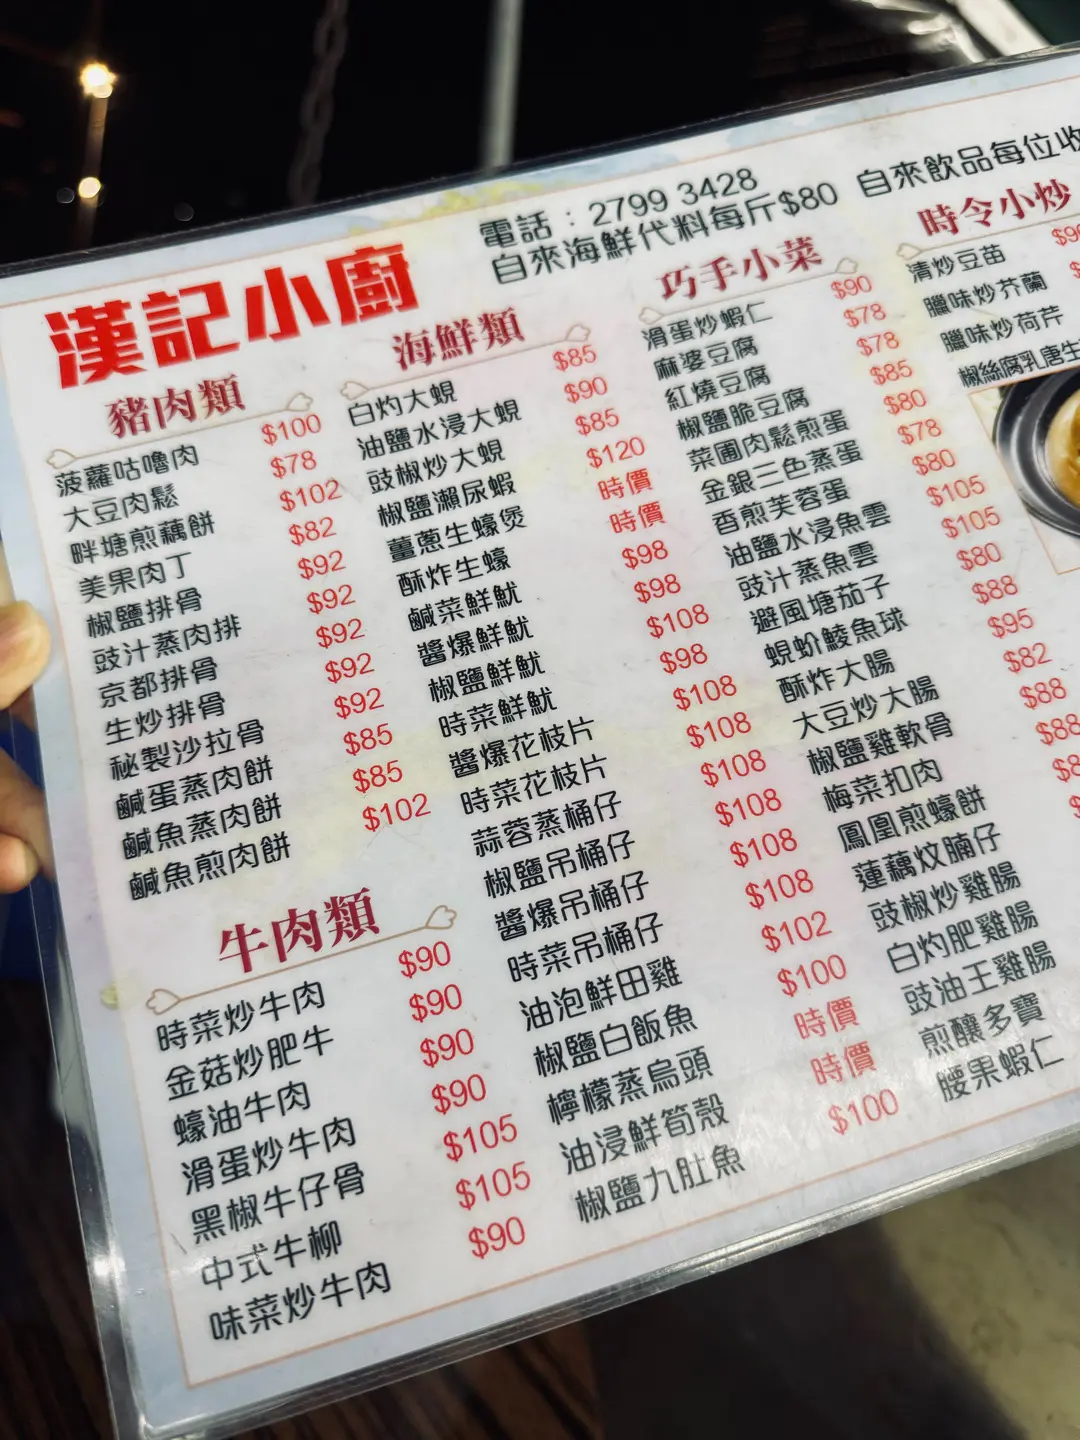 漢記小廚
電話：2799 3428
自來海鮮代料每斤$80
自來飲品每位收
豬肉類
菠蘿咕嚕肉 $100
大豆肉鬆 $78
畔塘煎藕餅 $102
美果肉丁 $82
椒鹽排骨 $92
豉汁蒸肉排 $92
京都排骨 $92
生炒排骨 $92
秘製沙拉骨 $92
鹹蛋蒸肉餅 $85
鹹魚蒸肉餅 $85
鹹魚煎肉餅 $102
牛肉類
時菜炒牛肉 $90
金菇炒肥牛 $90
蠔油牛肉 $90
滑蛋炒牛肉 $90
黑椒牛仔骨 $105
中式牛柳 $105
味菜炒牛肉 $90
海鮮類
白灼大蜆 $85
油鹽水浸大蜆 $90
豉椒炒大蜆 $85
椒鹽瀨尿蝦 $120
薑蔥生蠔煲 時價
酥炸生蠔 時價
鹹菜鮮魷 $98
醬爆鮮魷 $98
椒鹽鮮魷 $108
時菜鮮魷 $98
醬爆花枝片 $108
時菜花枝片 $108
蒜蓉蒸桶仔 $108
椒鹽吊桶仔 $108
醬爆吊桶仔 $108
時菜吊桶仔 $108
油泡鮮田雞 $102
椒鹽白飯魚 $100
檸檬蒸烏頭 時價
油浸鮮筍殼 時價
椒鹽九肚魚 $100
巧手小菜
滑蛋炒蝦仁 $90
麻婆豆腐 $78
紅燒豆腐 $78
椒鹽脆豆腐 $85
菜圃肉鬆煎蛋 $80
金銀三色蒸蛋 $78
香煎芙蓉蛋 $80
油鹽水浸魚雲 $105
豉汁蒸魚雲 $105
避風塘茄子 $80
蜆蚧鯪魚球 $88
酥炸大腸 $95
大豆炒大腸 $82
椒鹽雞軟骨 $88
梅菜扣肉 $88
鳳凰煎蠔餅
蓮藕炆腩仔
豉椒炒雞腸
白灼肥雞腸
豉油王雞腸
煎釀多寶
腰果蝦仁
時令小炒
清炒豆苗
臘味炒芥蘭
臘味炒荷芹
椒絲腐乳唐生